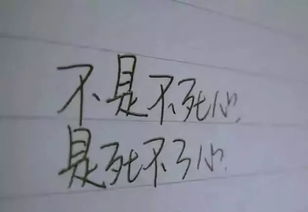 不是不死心
是死不了心